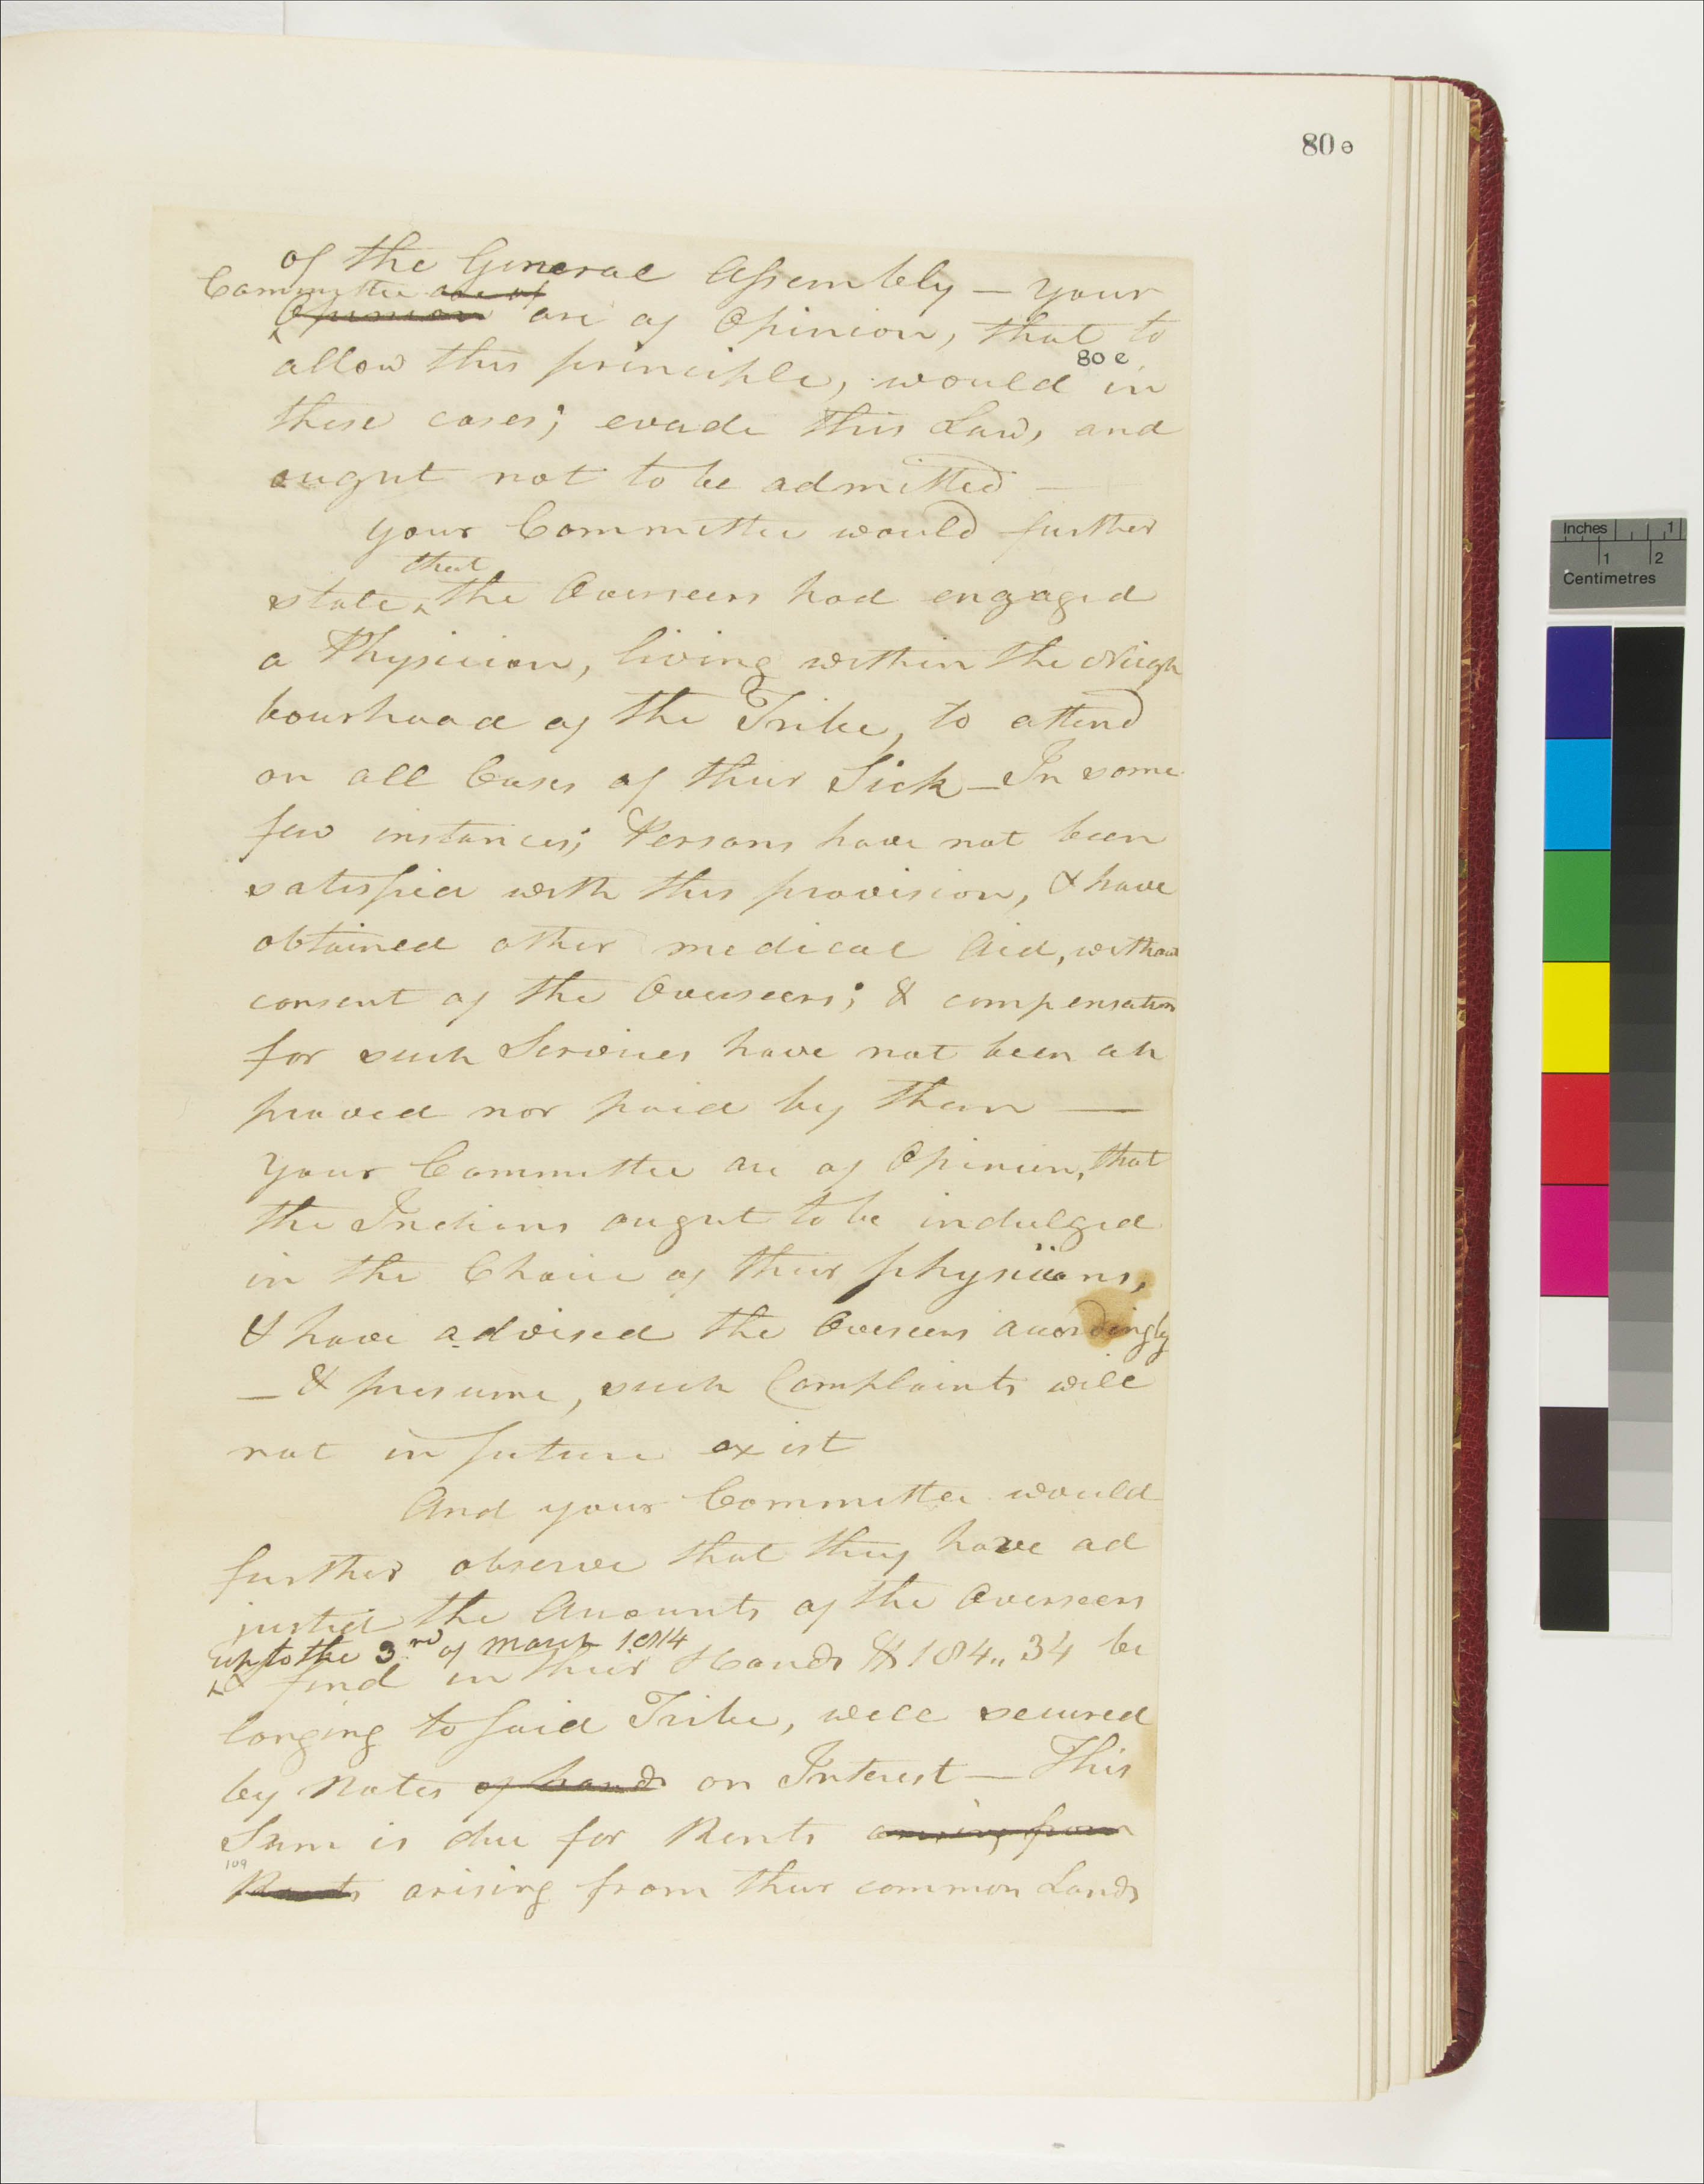 80 e
of the General Assembly — your
Committee are of
Opinion are of Opinion, that to
80 e
allow this principle, would in
these cases; evade this Law, and
ougut not to be admitted —
your Committee would further
that
state, the Overseers had engaged
a Physician, living within the Neigh
bourhood of the Tribe, to attend
on all Cases of their Sick — In some
few instances; Persons have not been
satisfied with this provision, & have
obtained other medical Aid, without
consent of the Overseers; & compensation
for such Services have not been ap
proved nor paid by them —
your Committee are of Opinion, that
the Indians ougut to be indulged
in the Choice of their physicians,
& have advised the Overseers accordingly
— & presume, such Complaints will
not in future exist
And your Committee would
further observe that they have ad
justed the Accounts of the Overseers
up to the 3rd of March 1814
& find in their Hands $184,, 34 be
longing to said Tribe, well secured
by Notes of hands on Interest — This
Sum is due for Rents arising from
109
Rents arising from their common Lands
Inches 1
1 2
Centimetres